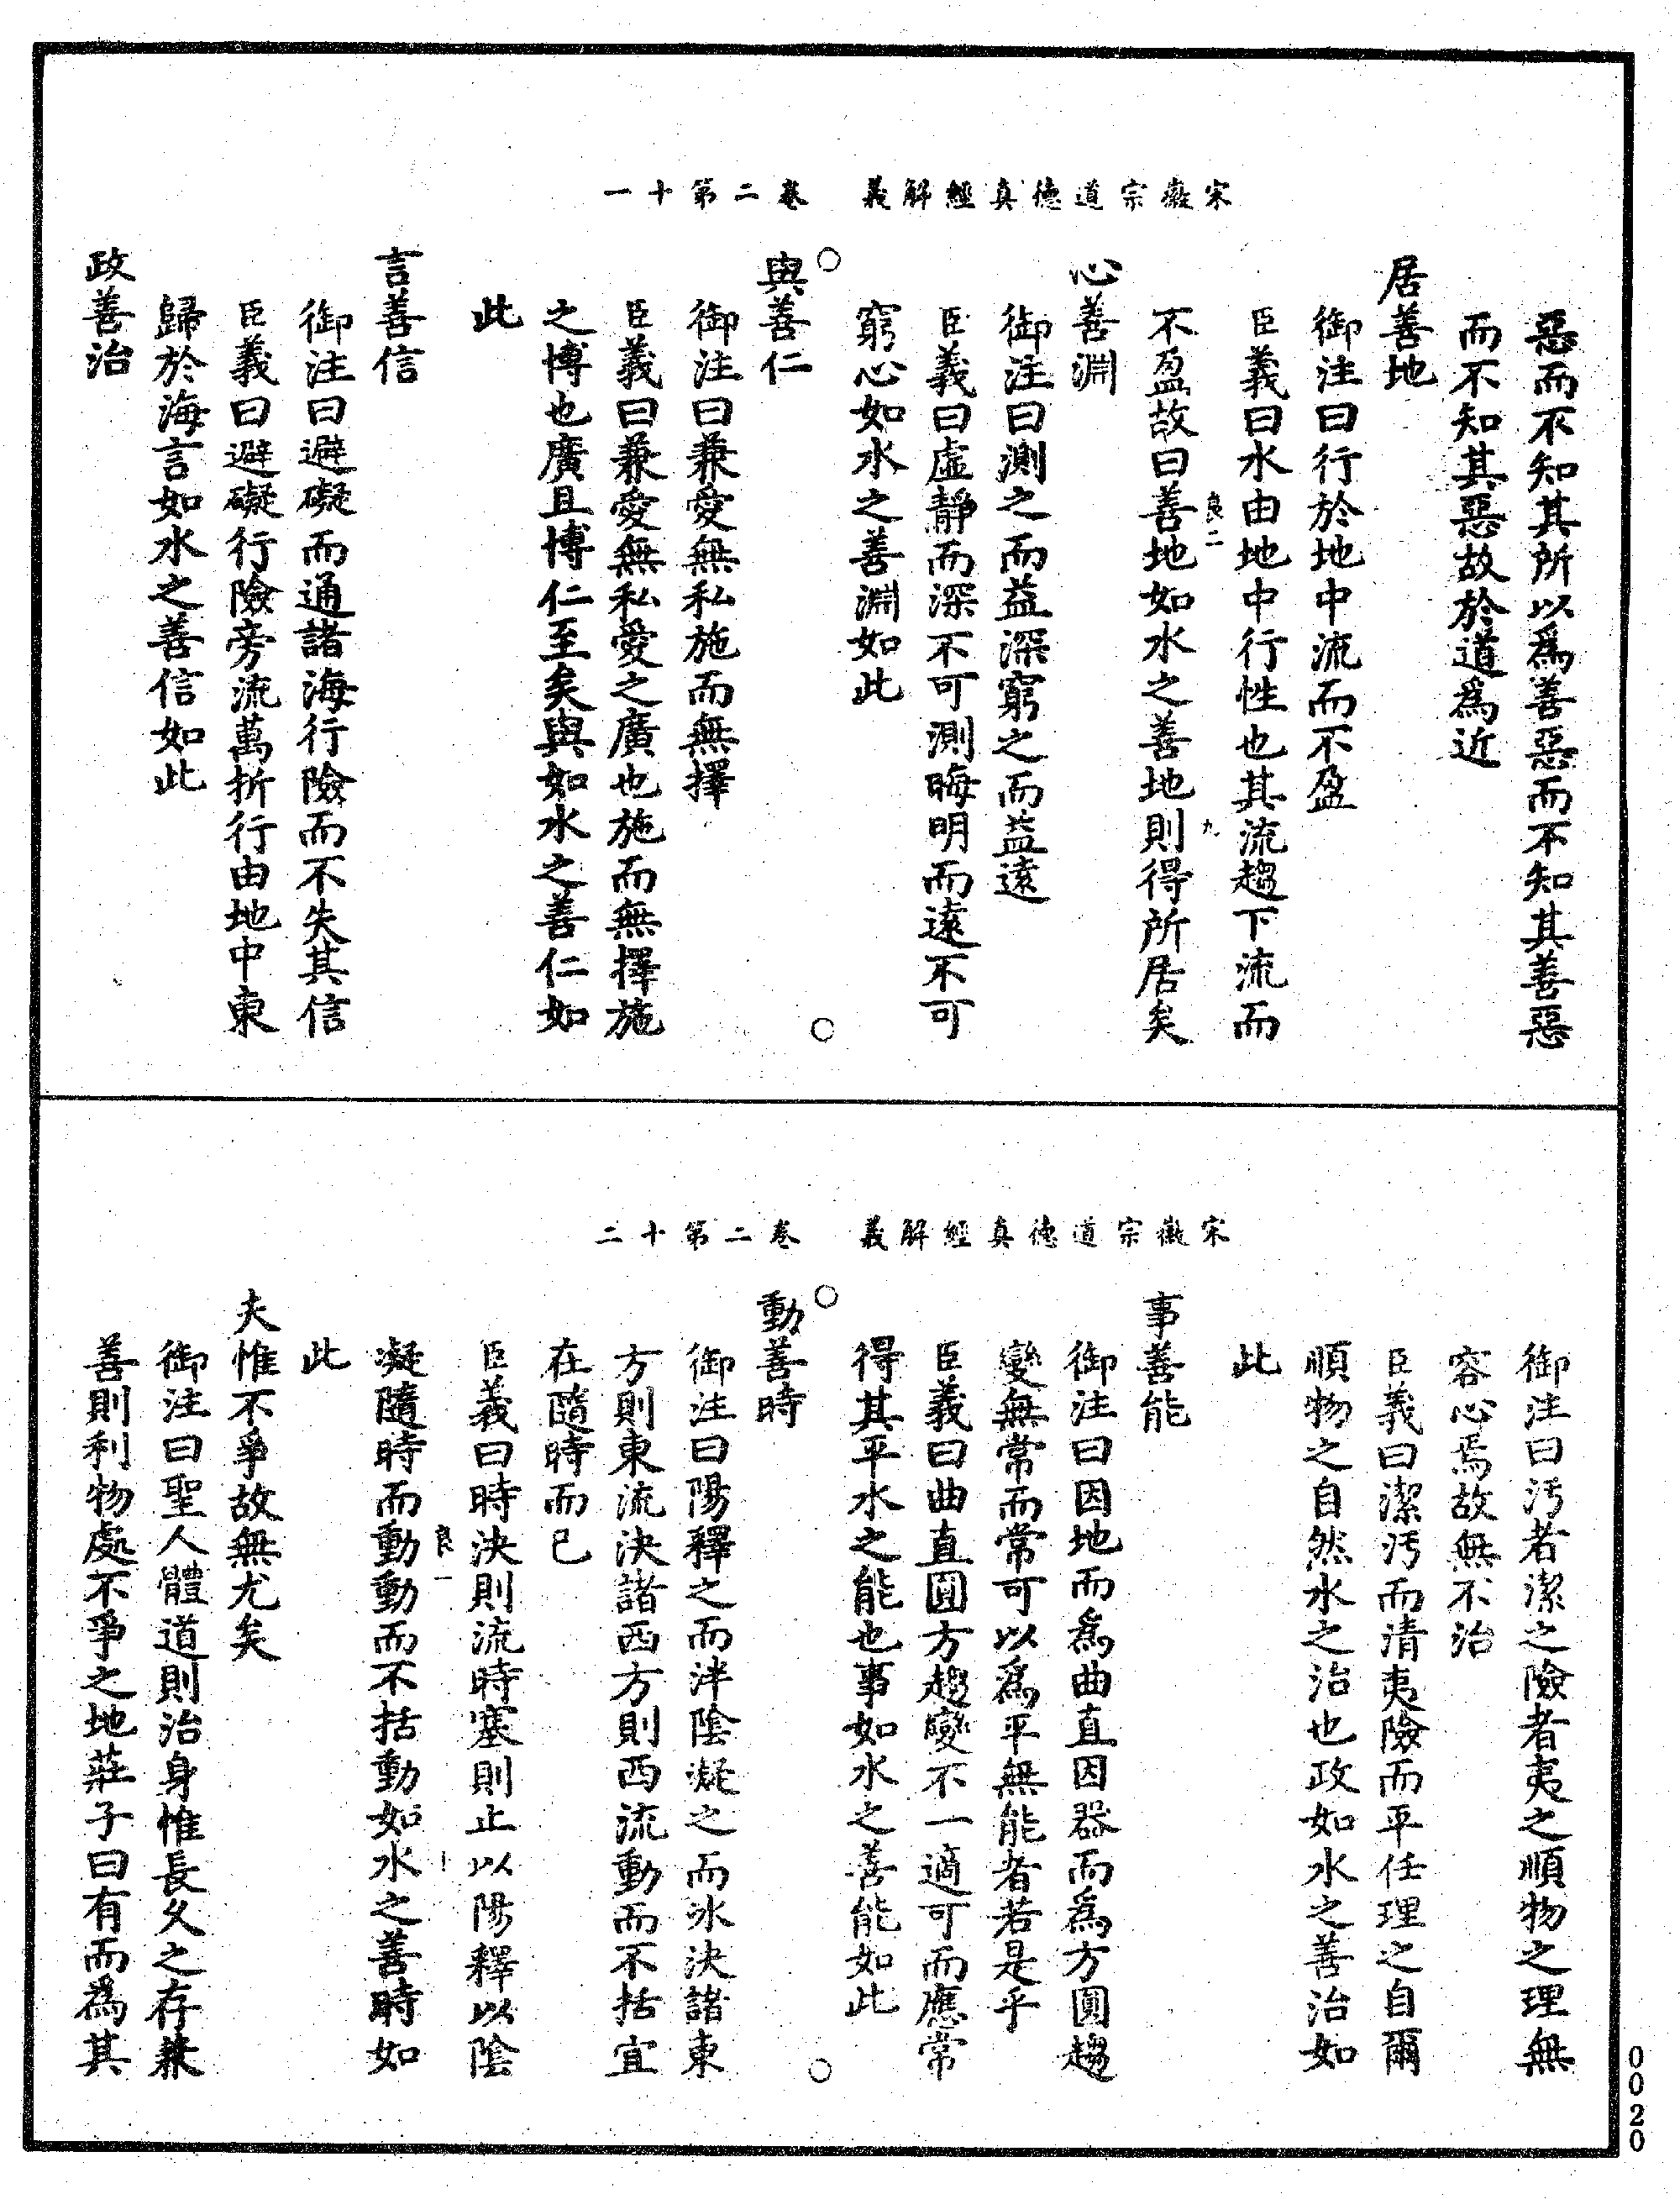 宋徽宗道德真經解義　卷二第十一
惡而不知其所以為善惡而不知其善惡
而不知其惡故於道為近
居善地
御注曰行於地中流而不盈
臣義曰水由地中行性也其流趨下流而
良二　九
不盈故曰善地如水之善地則得所居矣
心善淵
御注曰測之而益深窮之而益遠
臣義曰虛靜而深不可測晦明而遠不可
窮心如水之善淵如此
○　○
與善仁
御注曰兼愛無私施而無擇
臣義曰兼愛無私愛之廣也施而無擇施
之博也廣且博仁至矣與如水之善仁如
此
言善信
御注曰避礙而通諸海行險而不失其信
臣義曰避礙行險旁流萬折行由地中東
歸於海言如水之善信如此
政善治
宋徽宗道德真經解義　卷二第十二
御注曰汚者潔之險者夷之順物之理無
容心焉故無不治
臣義曰潔汚而清夷險而平任理之自爾
順物之自然水之治也政如水之善治如
此
事善能
御注曰因地而為曲直因器而為方圓趨
變無常而常可以為平無能者若是乎
臣義曰曲直圓方趨變不一適可而應常
得其平水之能也事如水之善能如此
○　○
動善時
御注曰陽釋之而泮陰凝之而冰決諸東
方則東流決諸西方則西流動而不括宜
在隨時而已
臣義曰時決則流時塞則止以陽釋以陰
良一　十
凝隨時而動動而不括動如水之善時如
此
夫惟不爭故無尤矣
御注曰聖人體道則治身惟長久之存兼
善則利物處不爭之地莊子曰有而為其
0020